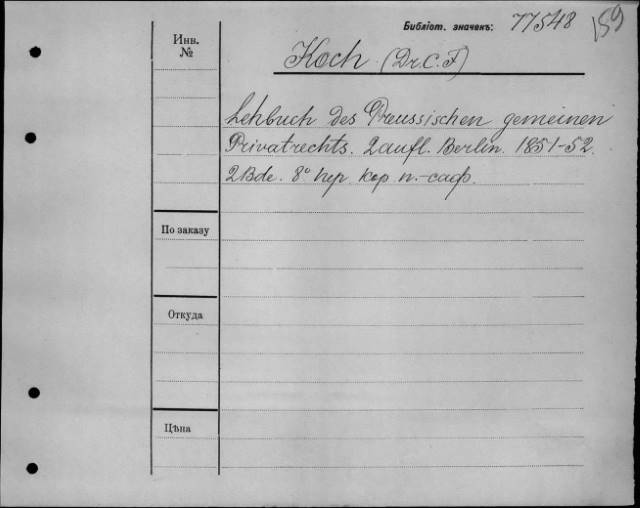 Библіот. значекъ: 77548 159
Инв. №
Koch (Dr. C. F.)
Lehrbuch des Preussischen gemeinen
Privatrechts. 2 aufl. Berlin. 1851-52.
2 Bde. 8° кор п.-саф.
По заказу
Откуда
Цѣна